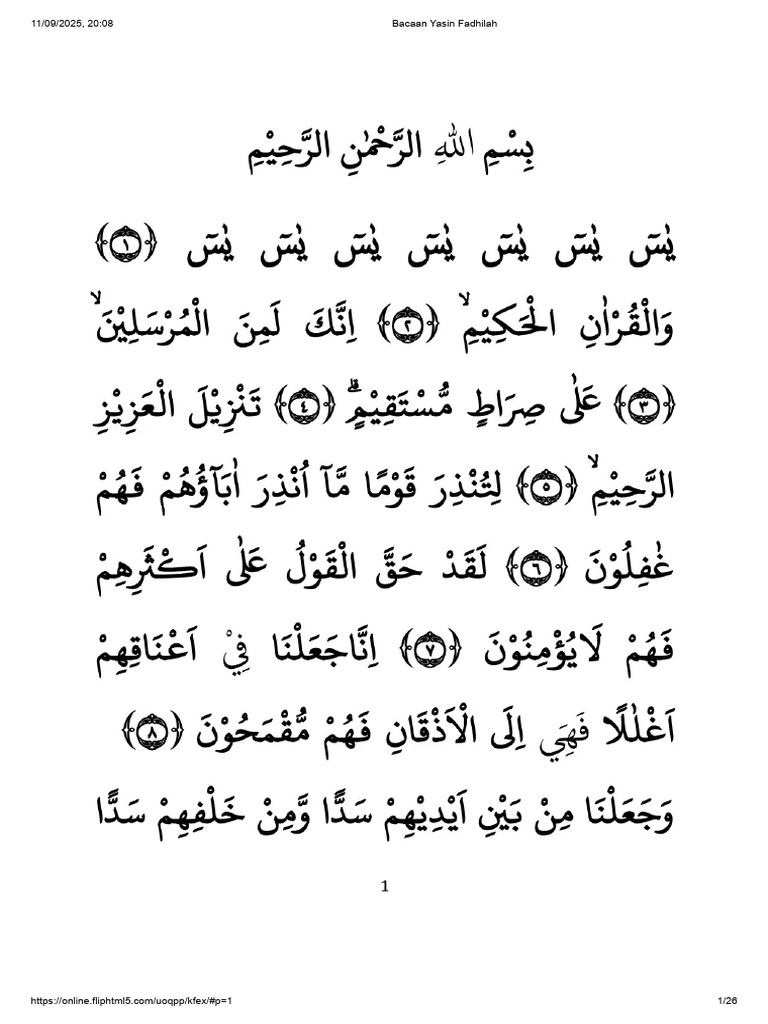 11/09/2025, 20:08 Bacaan Yasin Fadhilah
بِسْمِ اللهِ الرَّحْمٰنِ الرَّحِيْمِ
يٰسٓ يٰسٓ يٰسٓ يٰسٓ يٰسٓ يٰسٓ يٰسٓ ﴿١﴾
وَالْقُرْاٰنِ الْحَكِيْمِۙ ﴿٢﴾ اِنَّكَ لَمِنَ الْمُرْسَلِيْنَۙ
﴿٣﴾ عَلٰى صِرَاطٍ مُّسْتَقِيْمٍۗ ﴿٤﴾ تَنْزِيْلَ الْعَزِيْزِ
الرَّحِيْمِۙ ﴿٥﴾ لِتُنْذِرَ قَوْمًا مَّآ اُنْذِرَ اٰبَآؤُهُمْ فَهُمْ
غٰفِلُوْنَ ﴿٦﴾ لَقَدْ حَقَّ الْقَوْلُ عَلٰٓى اَكْثَرِهِمْ
فَهُمْ لَايُؤْمِنُوْنَ ﴿٧﴾ اِنَّاجَعَلْنَا فِيْ اَعْنَاقِهِمْ
اَغْلٰلًا فَهِيَ اِلَى الْاَذْقَانِ فَهُمْ مُّقْمَحُوْنَ ﴿٨﴾
وَجَعَلْنَا مِنْ بَيْنِ اَيْدِيْهِمْ سَدًّا وَّمِنْ خَلْفِهِمْ سَدًّا
1
https://online.fliphtml5.com/uoqpp/kfex/#p=1 1/26